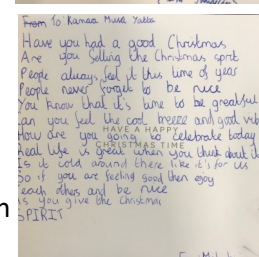 From To: Ramaa Musa Yakta
Have you had a good Christmas
Are you selling the Christmas sprit
People always feel it this time of year
People never forget to be nice
You know that it's time to be greatful
Can you feel the cool breeze and good vib
HAVE A HAPPY
How are you going to celebrate today
CHRISTMAS TIME
Real life is great when you think about it
Is it cold around there like it's for us
So if you are feeling good then enjoy
each others and be nice
As you give the Christmas
SPIRIT